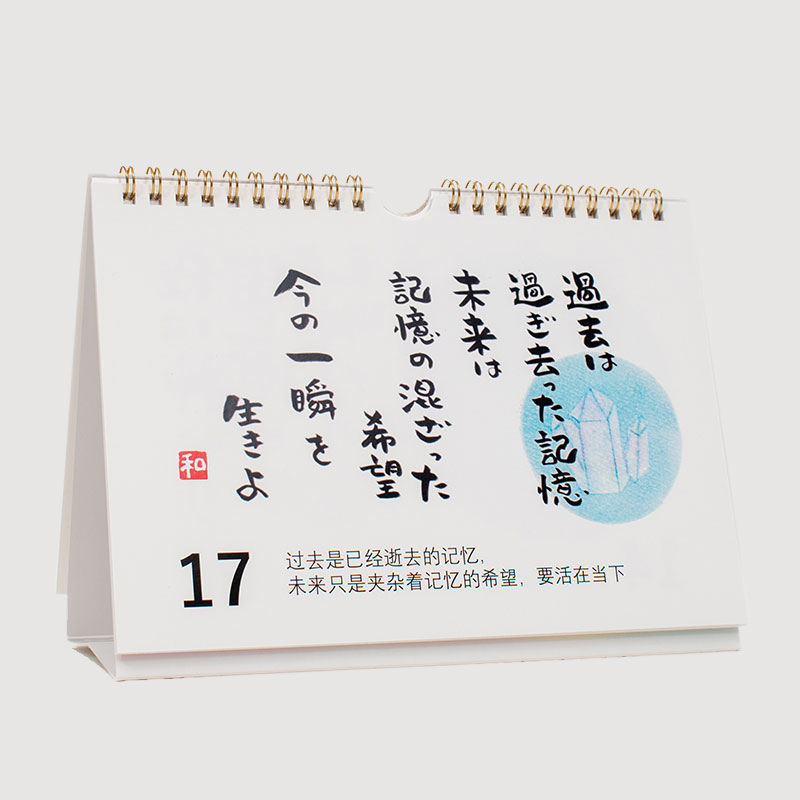 過去は
過ぎ去った記憶
未来は
記憶の混ざった
希望
今の一瞬を
生きよ
和
17
过去是已经逝去的记忆,
未来只是夹杂着记忆的希望，要活在当下